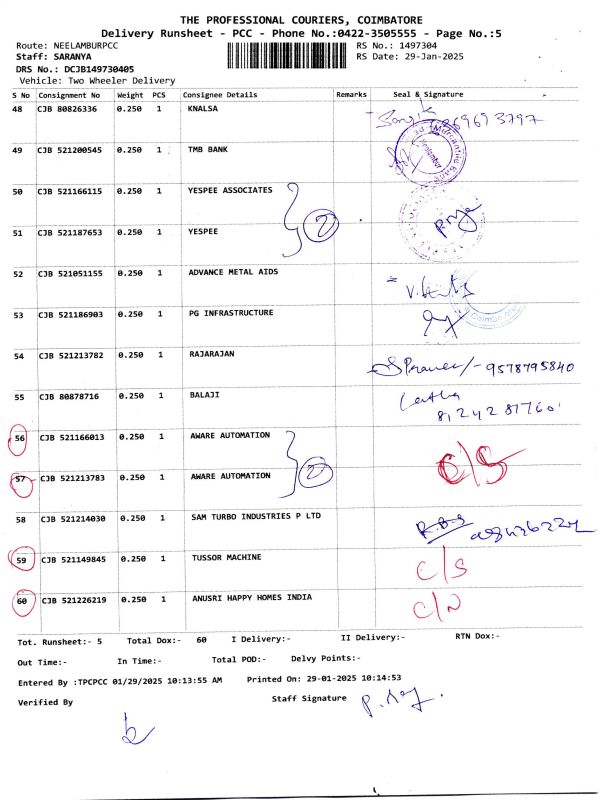 THE PROFESSIONAL COURIERS, COIMBATORE
Delivery Runsheet - PCC - Phone No.:0422-3505555 - Page No.:5
Route: NEELAMBURPCC RS No.: 1497304
Staff: SARANYA RS Date: 29-Jan-2025
DRS No.: DCJB149730405
Vehicle: Two Wheeler Delivery
S No Consignment No Weight PCS Consignee Details Remarks Seal & Signature
48 CJB 80826336 0.250 1 KNALSA
49 CJB 521200545 0.250 1 TMB BANK
50 CJB 521166115 0.250 1 YESPEE ASSOCIATES
2
51 CJB 521187653 0.250 1 YESPEE
Priya
52 CJB 521051155 0.250 1 ADVANCE METAL AIDS
53 CJB 521186903 0.250 1 PG INFRASTRUCTURE
54 CJB 521213782 0.250 1 RAJARAJAN
9578795840
55 CJB 80878716 0.250 1 BALAJI
Latha
8124287760
56 CJB 521166013 0.250 1 AWARE AUTOMATION
C/S
2
57 CJB 521213783 0.250 1 AWARE AUTOMATION
58 CJB 521214030 0.250 1 SAM TURBO INDUSTRIES P LTD
59 CJB 521149845 0.250 1 TUSSOR MACHINE C/S
60 CJB 521226219 0.250 1 ANUSRI HAPPY HOMES INDIA C/N
Tot. Runsheet:- 5 Total Dox:- 60 I Delivery:- II Delivery:- RTN Dox:-
Out Time:- In Time:- Total POD:- Delvy Points:-
Entered By :TPCPCC 01/29/2025 10:13:55 AM Printed On: 29-01-2025 10:14:53
Verified By Staff Signature